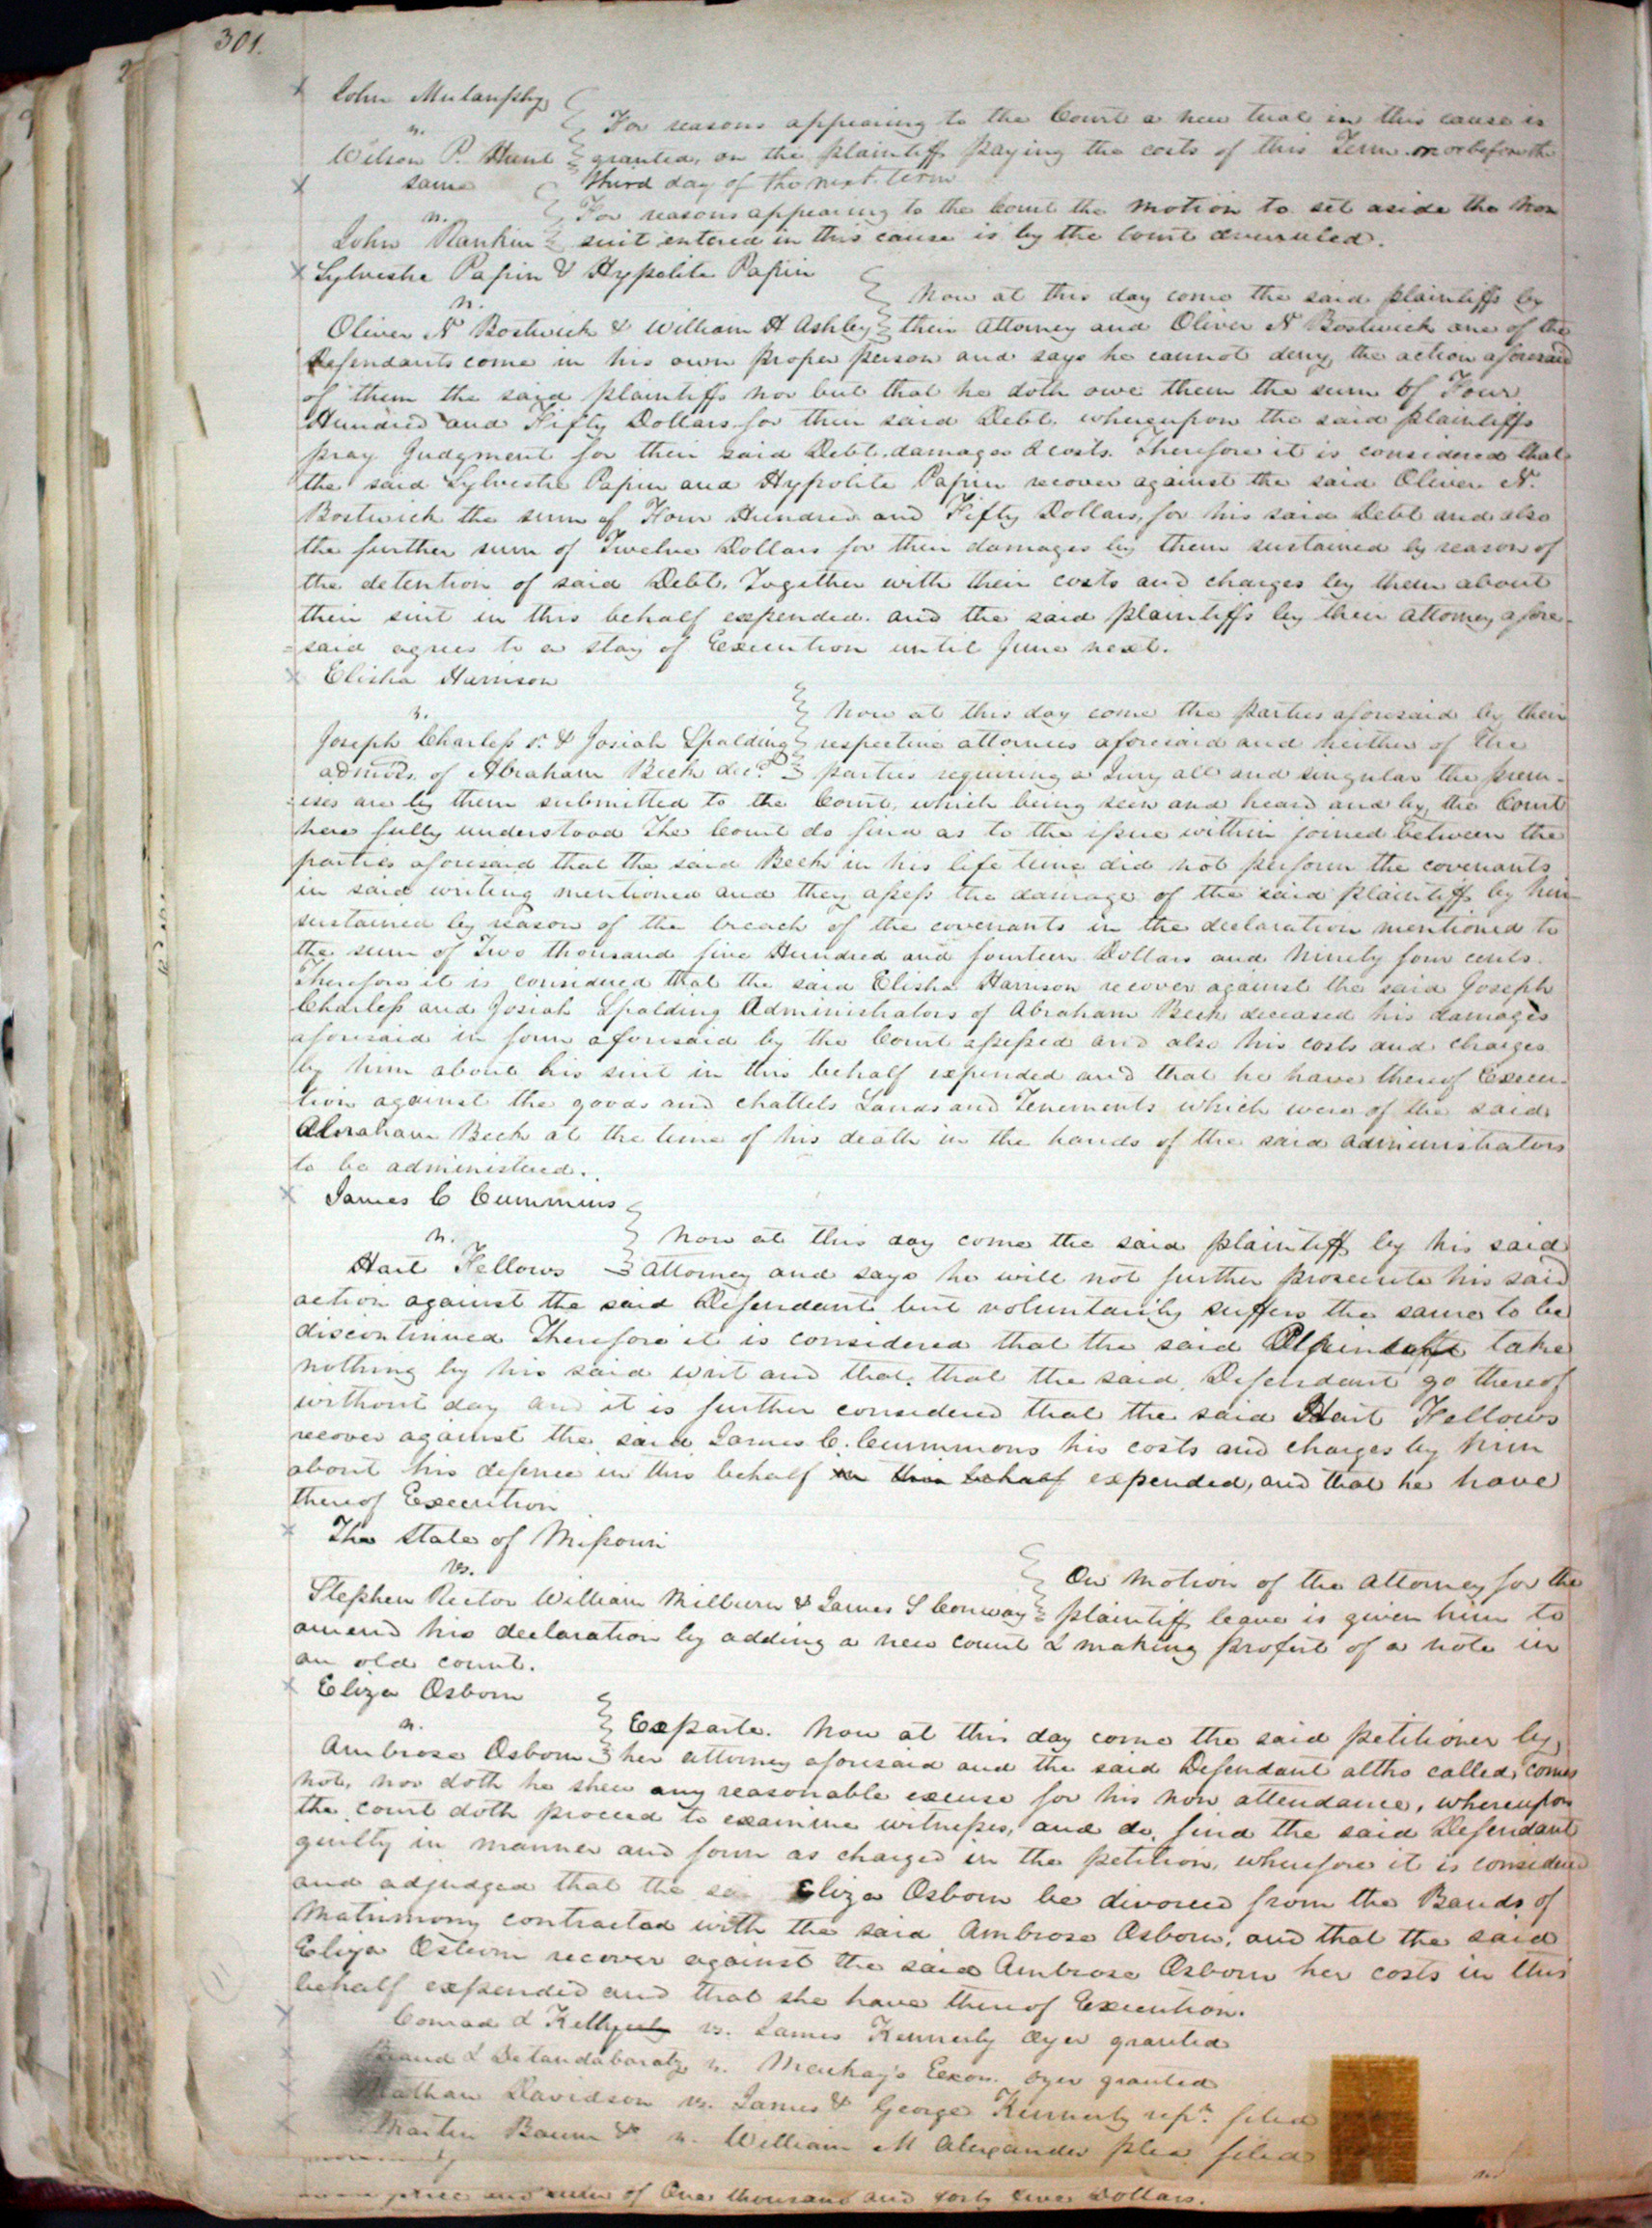 301.
John Mulanphy
vs.
Wilson P. Hunt
For reasons appearing to the Court a new trial in this cause is
granted, on the plaintiff paying the costs of this Term on or before the
third day of the next term
same
vs.
John Rankin
For reasons appearing to the Court the motion to set aside the non
suit entered in this cause is by the Court overruled.
Sylvestre Papin & Hypolite Papin
vs.
Oliver N Bostwick & William H Ashley
Now at this day come the said plaintiffs by
their attorney and Oliver N Bostwick one of the
Defendants come in his own proper person and says he cannot deny the action aforesaid
of them the said plaintiffs nor but that he doth owe them the sum of Four
Hundred and Fifty Dollars for their said Debt, whereupon the said plaintiffs
pray Judgment for their said Debt, damages & costs. Therefore it is considered that
the said Sylvestre Papin and Hypolite Papin recover against the said Oliver N.
Bostwick the sum of Four Hundred and Fifty Dollars, for his said Debt and also
the further sum of Twelve Dollars for their damages by them sustained by reason of
the detention of said Debt, Together with their costs and charges by them about
their suit in this behalf expended. and the said plaintiffs by their attorney afore-
=said agrees to a stay of Execution until June next.
Elisha Harrison
vs.
Joseph Charless sr. & Josiah Spalding
admors. of Abraham Beck decd.
Now at this day come the parties aforesaid by their
respective attornies aforesaid and neither of the
parties requiring a Jury all and singular the prem-
=ises are by them submitted to the Court, which being seen and heard and by the Court
here fully understood The Court do find as to the issue within joined between the
parties aforesaid that the said Beck in his life time did not perform the covenants
in said writing mentioned and they assess the damage of the said plaintiff by him
sustained by reason of the breach of the covenants in the declaration mentioned to
the sum of Two thousand five Hundred and fourteen Dollars and ninety four cents.
Therefore it is considered that the said Elisha Harrison recover against the said Joseph
Charless and Josiah Spalding Administrators of Abraham Beck deceased his damages
aforesaid in form aforesaid by the Court assessed and also his costs and charges
by him about his suit in this behalf expended and that he have thereof Execu-
tion against the goods and chattels Lands and Tenements which were of the said
Abraham Beck at the time of his death in the hands of the said administrators
to be administered.
James C Cummins
vs.
Hart Fellows
Now at this day come the said plaintiff by his said
attorney and says he will not further prosecute his said
action against the said Defendant but voluntarily suffers the same to be
discontinued Therefore it is considered that the said Plaintiff take
nothing by his said writ and that, that the said Defendant go thereof
without day and it is further considered that the said Hart Fellows
recover against the said James C. Cummmons his costs and charges by him
about his defence in this behalf in this behalf expended, and that he have
thereof Execution
The State of Missouri
vs.
Stephen Rector William Milburn & James S Conway
On motion of the attorney for the
plaintiff leave is given him to
amend his declaration by adding a new count & making profert of a note in
an old count.
Eliza Osborn
vs.
Ambrose Osborn
Exparte. Now at this day come the said petitioner by
her attorney aforesaid and the said Defendant altho called, comes
not, nor doth he shew any reasonable excuse for his non attendance, whereupon
the court doth proceed to examine witnesses, and do find the said Defendant
guilty in manner and form as charged in the petition, wherefore it is considered
and adjudged that the Eliza Osborn be divorced from the Bands of
Matrimony contracted with the said Ambrose Osborn, and that the said
Eliza Osborn recover against the said Ambrose Osborn her costs in this
behalf expended and that she have thereof Execution.
Conrad & Kelly vs. James Kennerly Oyer granted
& vs. Exors. oyer granted
Nathan Davidson vs. James & George Kennerly repn. filed
Martin Baum & vs. William M Alexander plea filed
of One thousand and forty Dollars.